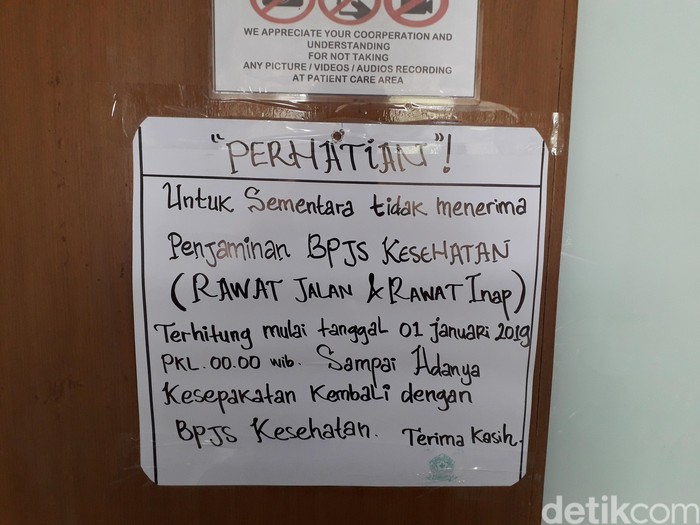 WE APPRECIATE YOUR COORPERATION AND
UNDERSTANDING
FOR NOT TAKING
ANY PICTURE / VIDEOS / AUDIOS RECORDING
AT PATIENT CARE AREA
"PERHATiAN"!
Untuk Sementara tidak menerima
Penjaminan BPJS KESEHATAN
(RAWAT JALAN & RAWAT Inap)
Terhitung mulai tanggal 01 januari 2019
PKL. 00.00 wib. Sampai Adanya
Kesepakatan Kembali dengan
BPJS Kesehatan. Terima Kasih.
detikcom